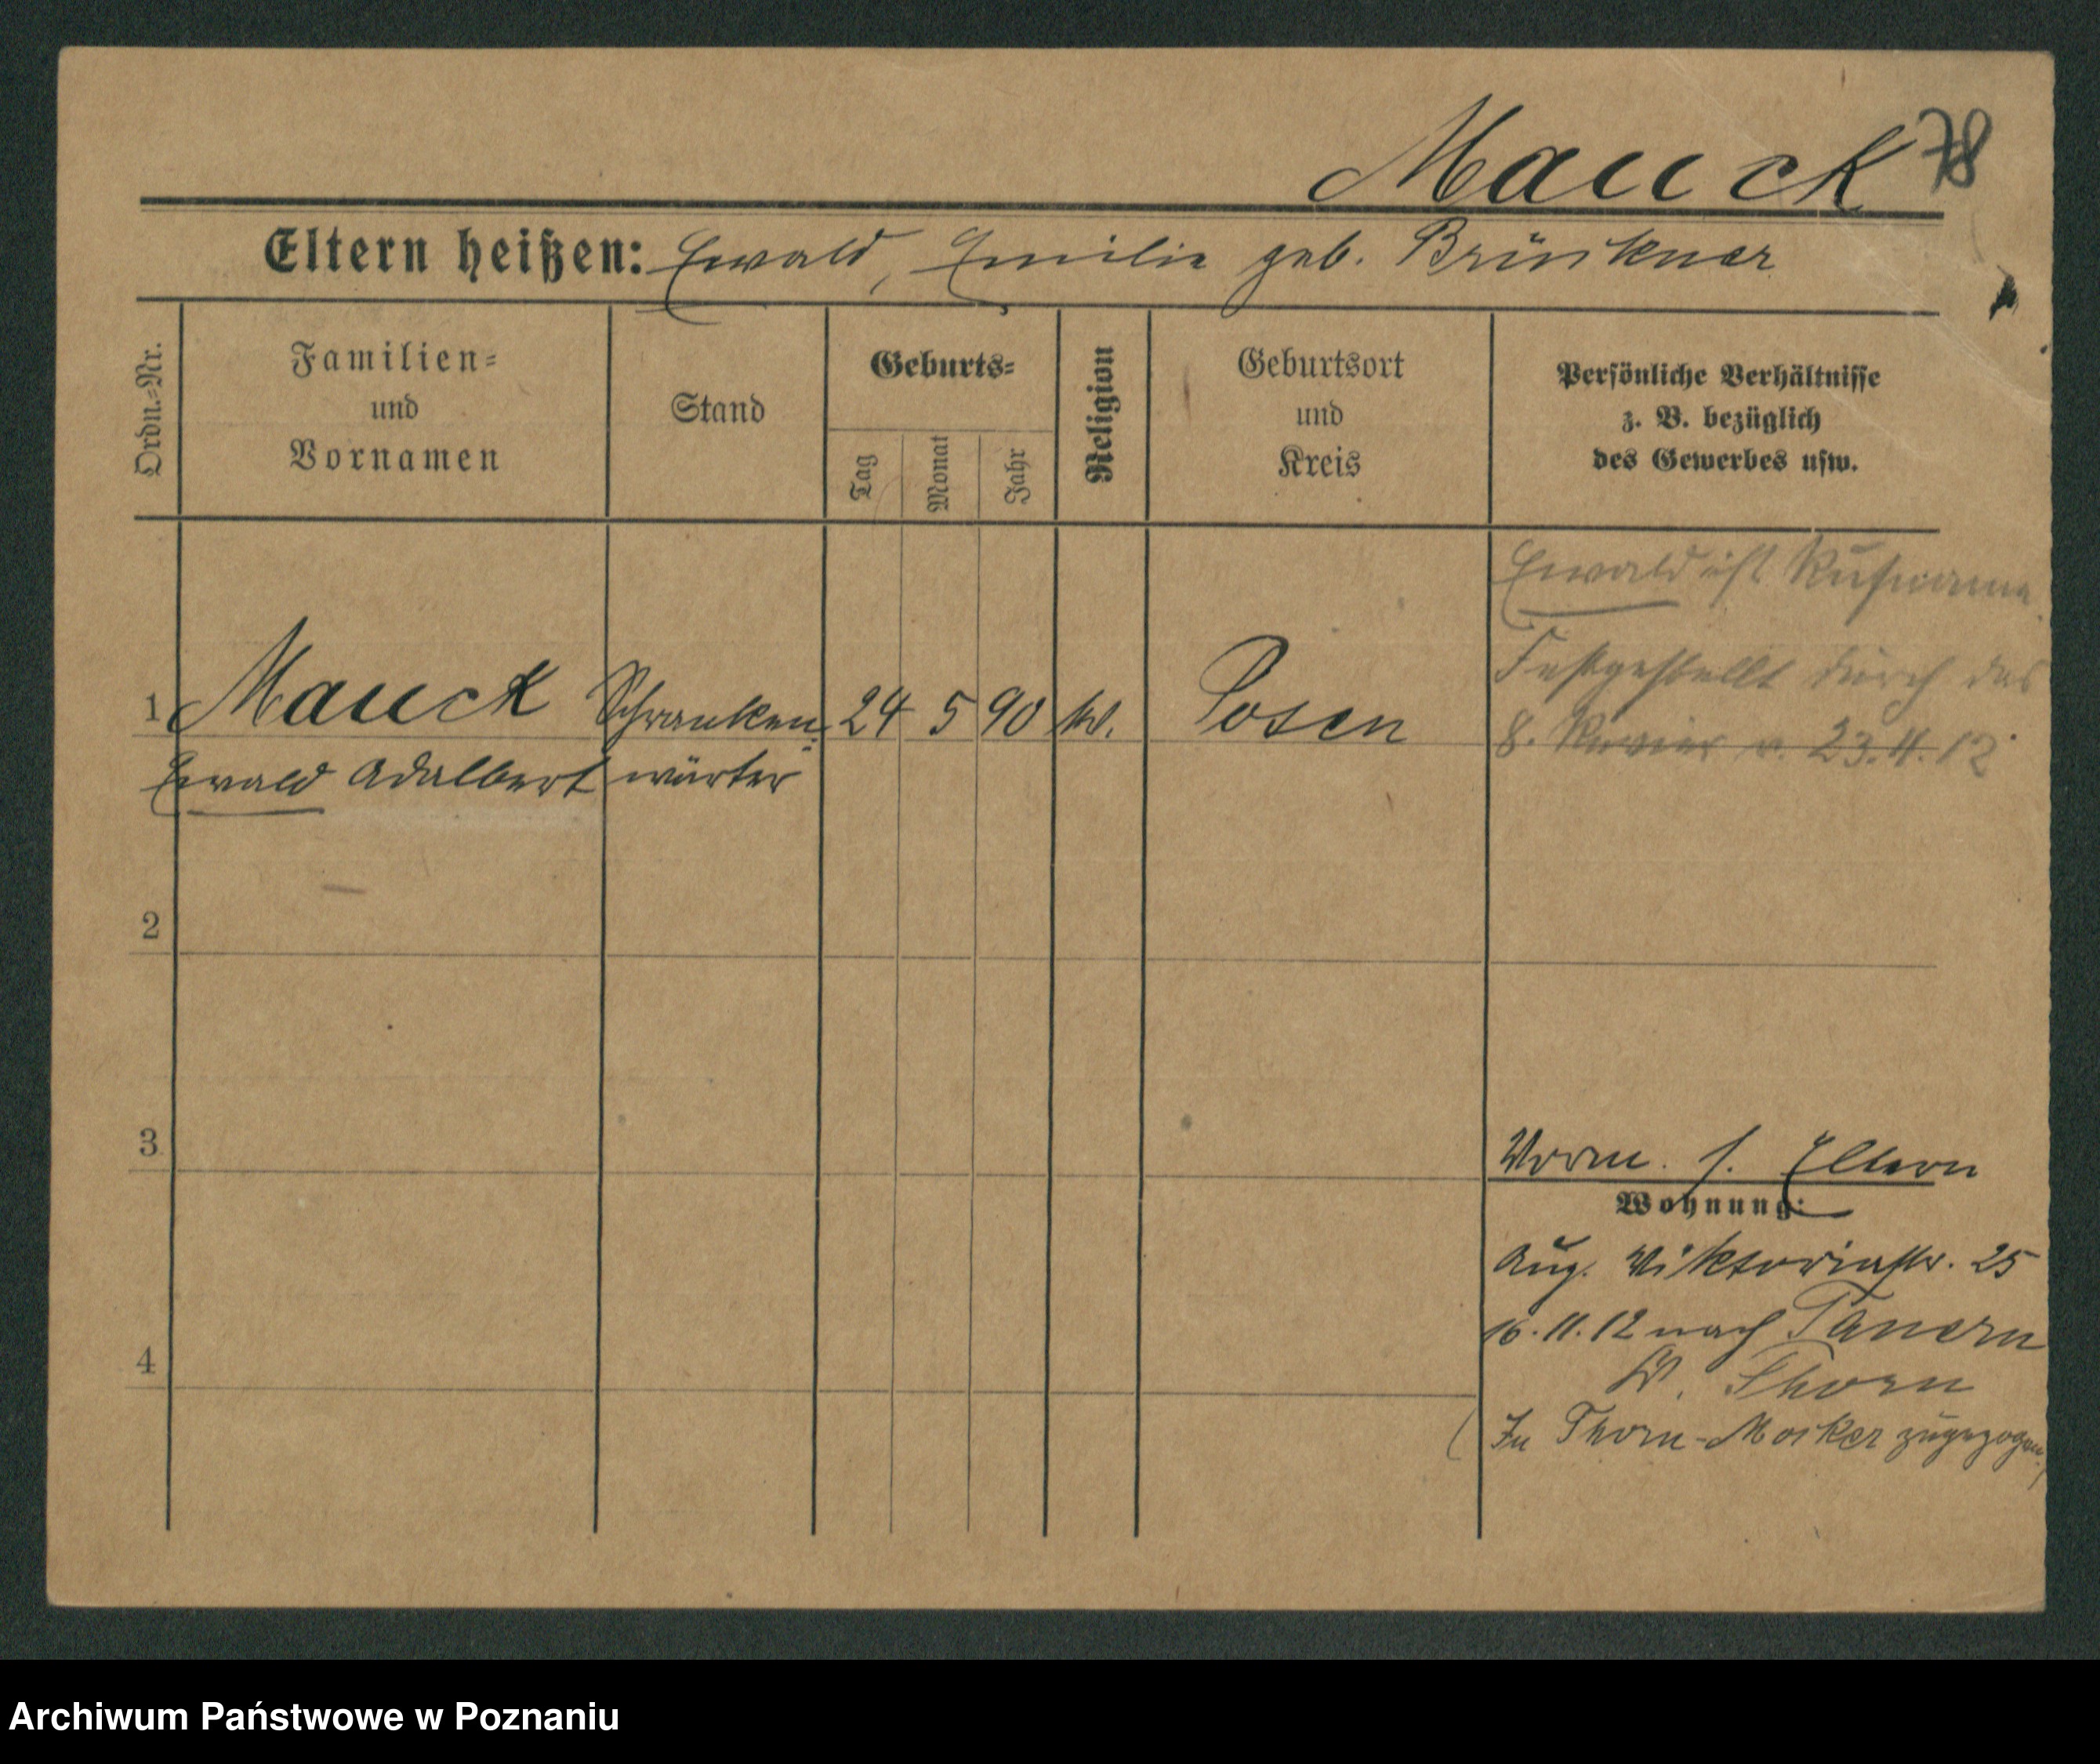 Mauck 78
Eltern heißen: Ewald, Emilie geb. Brückner
Ordn.-Nr.
Familien-
und
Vornamen
Stand
Geburts-
Tag
Monat
Jahr
Religion
Geburtsort
und
Kreis
Persönliche Verhältnisse
z. B. bezüglich
des Gewerbes usw.
Ewald ist Rufname.
Festgestellt durch das
8. Revier v. 23.4.12
1 Mauck Schranken- 24 5 90 Posen
Ewald Adalbert wärter
2
3
Vorm. s. Eltern
Wohnung:
Aug. Viktoriastr. 25
16.11.12 nach Tauern
4
Thorn
(In Thorn-Mocker zugezogen.)
Archiwum Państwowe w Poznaniu